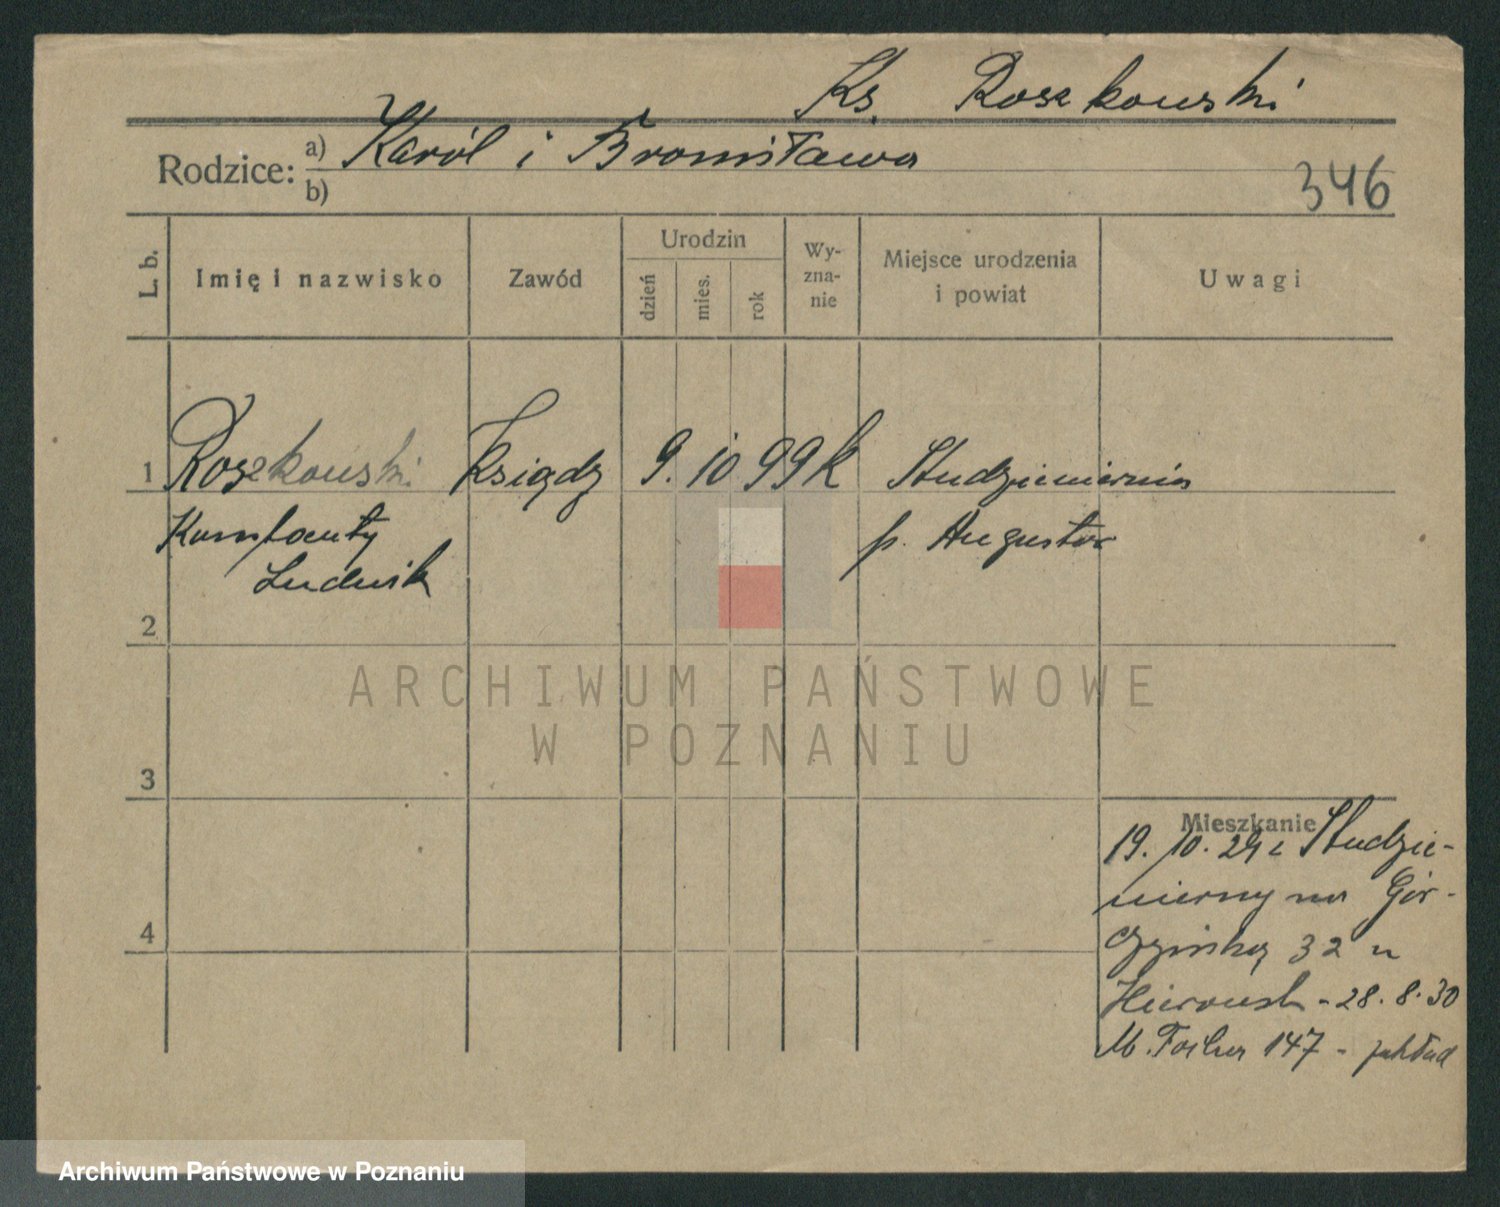 Ks. Roszkowski
Rodzice: a) Karól i Bronisława
b)
346
L. b.
Imię i nazwisko
Zawód
Urodzin
dzień
mies.
rok
Wy-
zna-
nie
Miejsce urodzenia
i powiat
Uwagi
1 Roszkowski Ksiądz 9. 10 99 k Studzieniczna
Konstanty p. Augustów
Ludwik
2
ARCHIWUM PAŃSTWOWE
W POZNANIU
3
Mieszkanie
19. 10. 29 z Studzie-
na Gór-
czyńską 32 u
- 28. 8. 30
M. Focha 147 - zakład
4
Archiwum Państwowe w Poznaniu